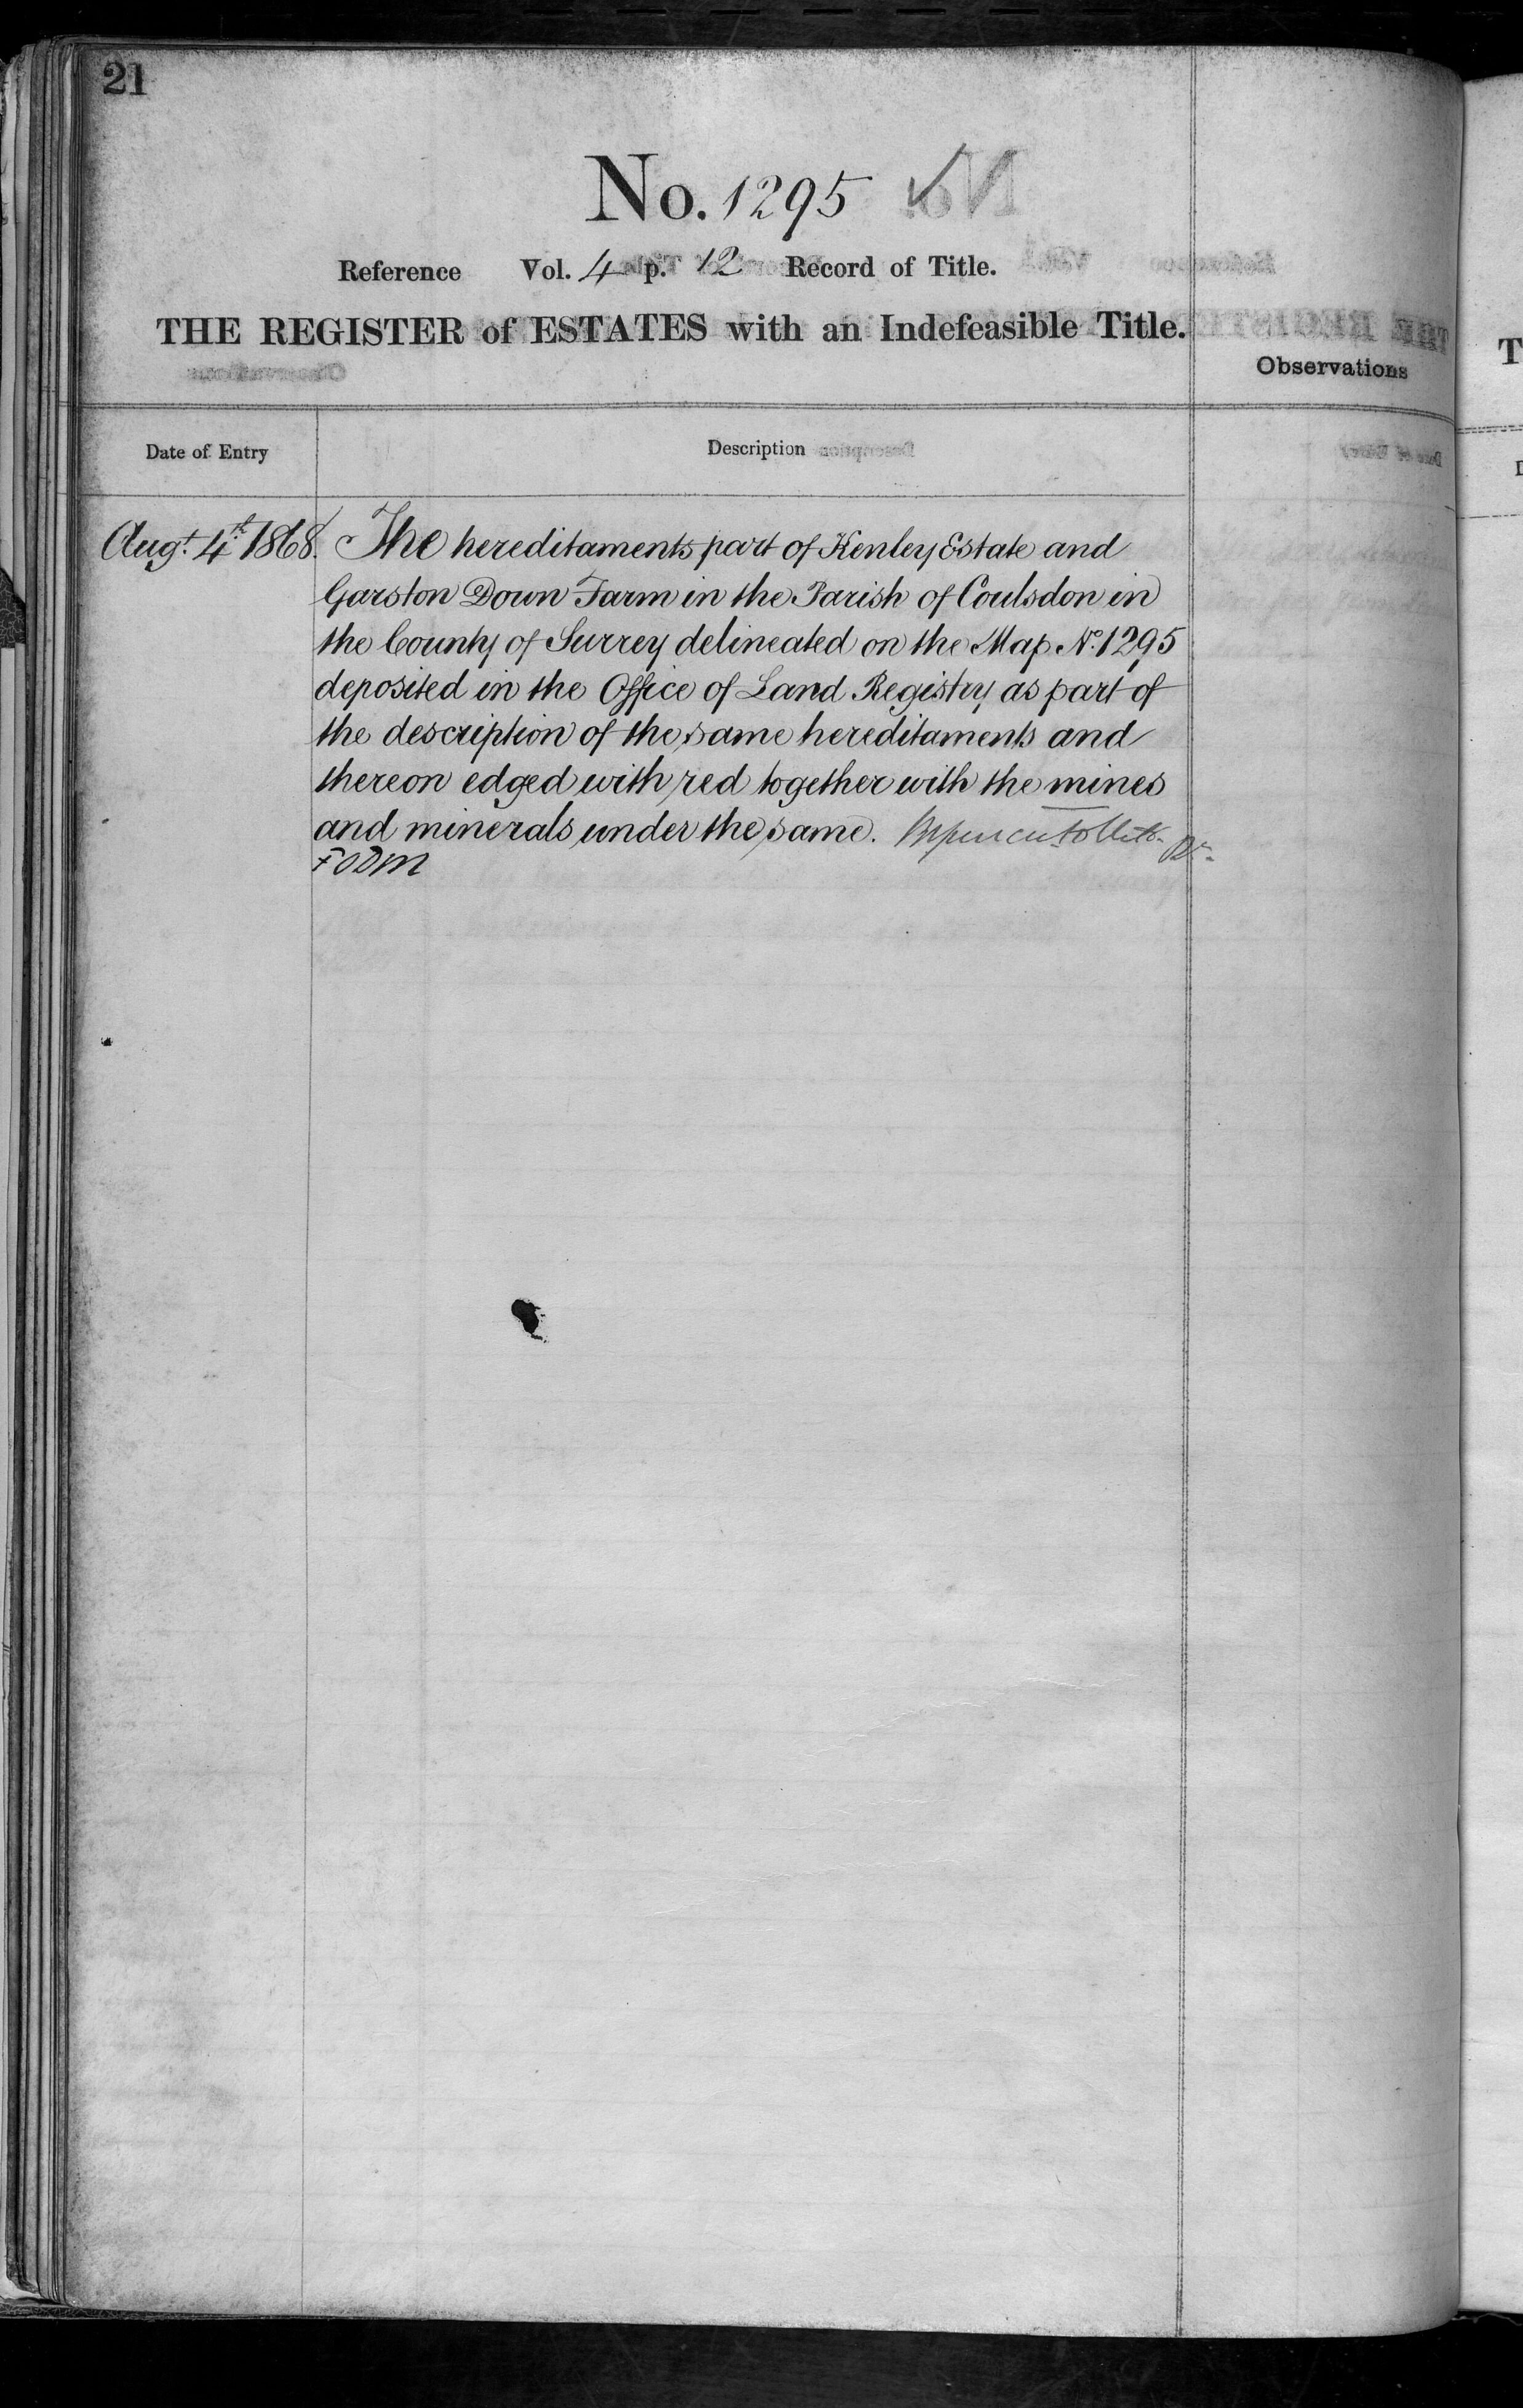 21
No. 1295
Reference Vol. 4 p. 12 Record of Title.
THE REGISTER of ESTATES with an Indefeasible Title.
Observations
Date of Entry
Description
Augt. 4th 1868. The hereditaments part of Kenley Estate and
Garston Down Farm in the Parish of Coulsdon in
the County of Surrey delineated on the Map No. 1295
deposited in the Office of Land Registry as part of
the description of the same hereditaments and
thereon edged with red together with the mines
and minerals under the same.